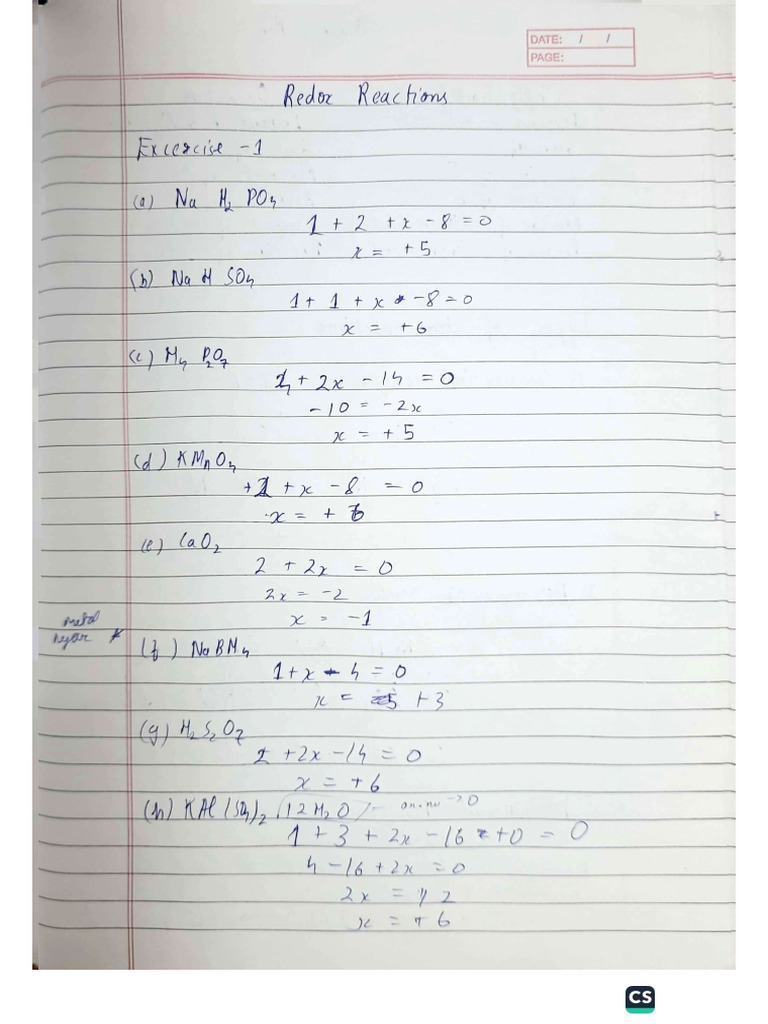 DATE: / /
PAGE:
Redox Reactions
Excercise -1
(a) Na H₂ PO₄
1 + 2 + x - 8 = 0
x = +5
(b) Na H SO₄
1 + 1 + x - 8 = 0
x = +6
(c) H₄ P₂O₇
4 + 2x - 14 = 0
-10 = -2x
x = +5
(d) KMnO₄
+1 + x - 8 = 0
x = +
(e) CaO₂
2 + 2x = 0
2x = -2
x = -1
(f) NaBH₄
1 + x - 4 = 0
x = +3
(g) H₂S₂O₇
2 + 2x - 14 = 0
x = +6
(h) KAl(SO₄)₂ . 12H₂O → 0
1 + 3 + 2x - 16 + 0 = 0
4 - 16 + 2x = 0
2x = 12
x = +6
CS